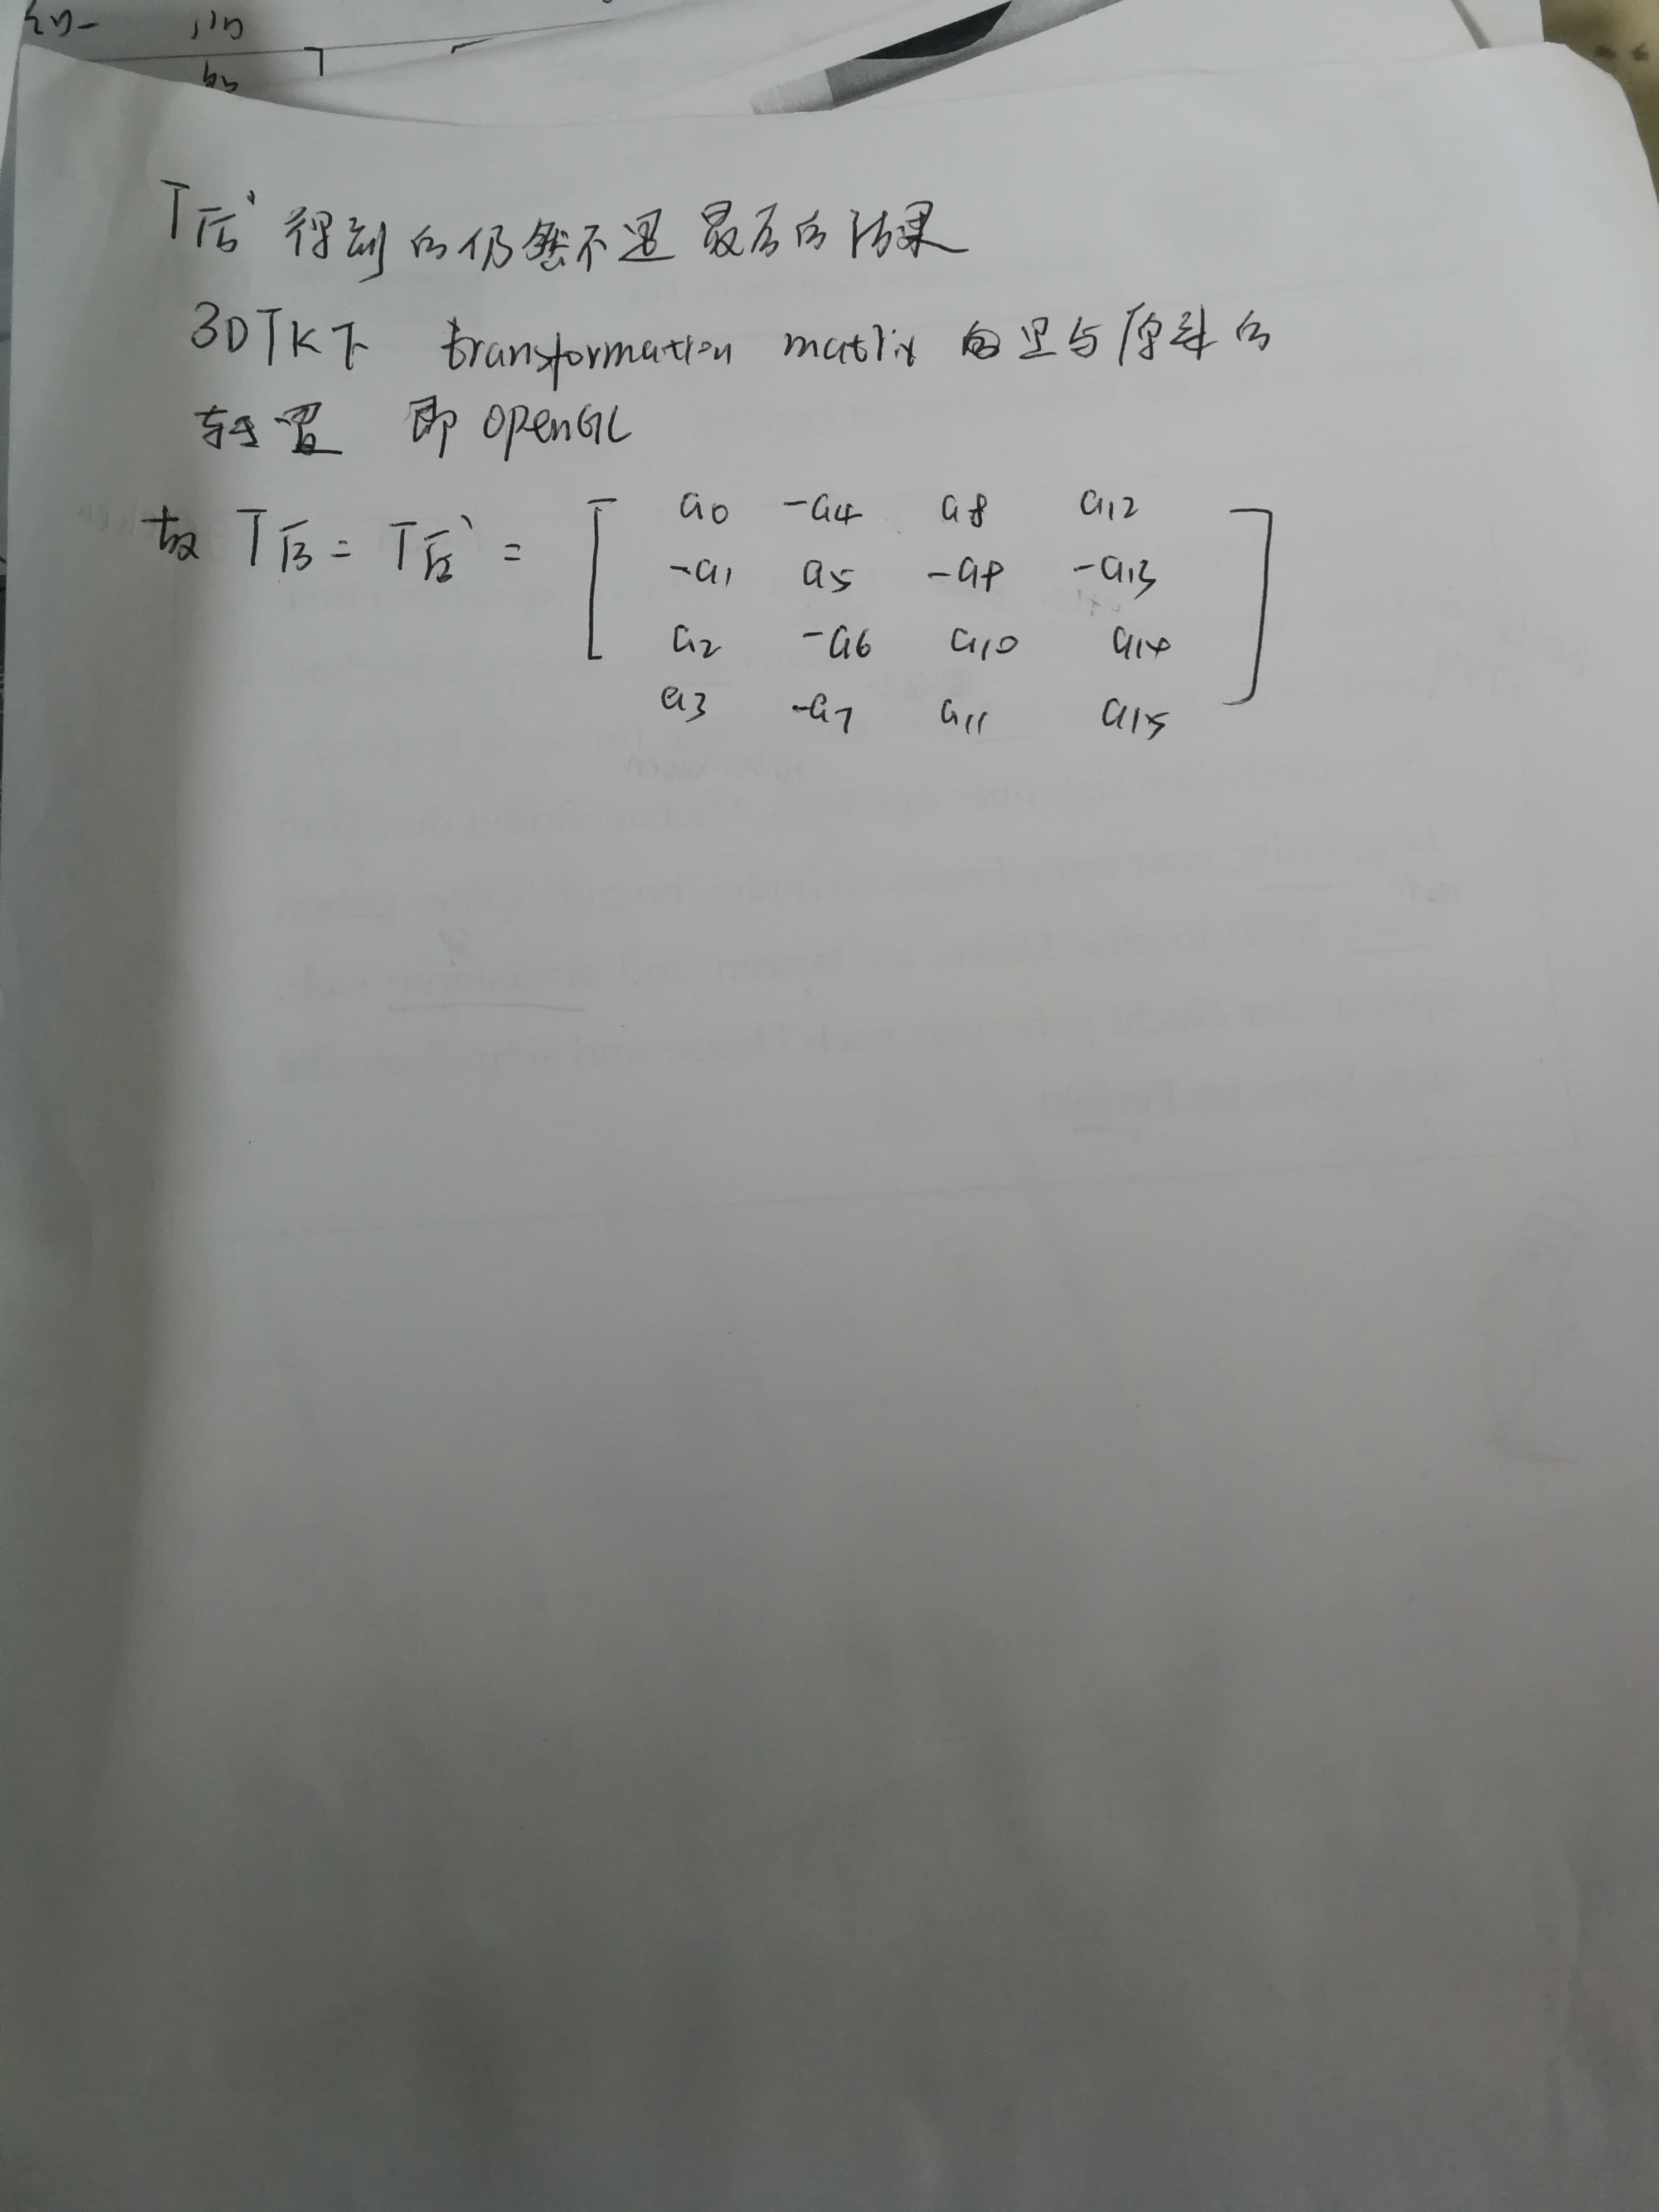 T后' 得到的仍然不是最后的结果
3DTK下 transformation matrix 的是与原来的
转置 即 OpenGL
故 T后 = T后' =
a0 -a4 a8 a12
-a1 a5 -a9 -a13
a2 -a6 a10 a14
a3 -a7 a11 a15